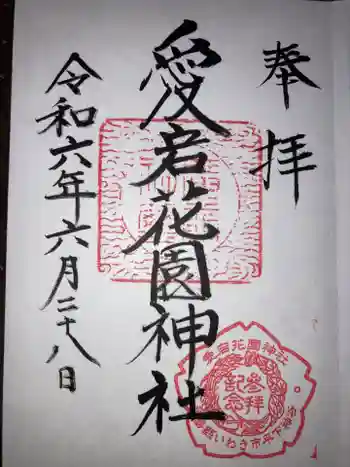 奉拝
愛宕花園神社
令和六年六月二十八日
愛宕花園神社
参拝
記念
いわき市平下